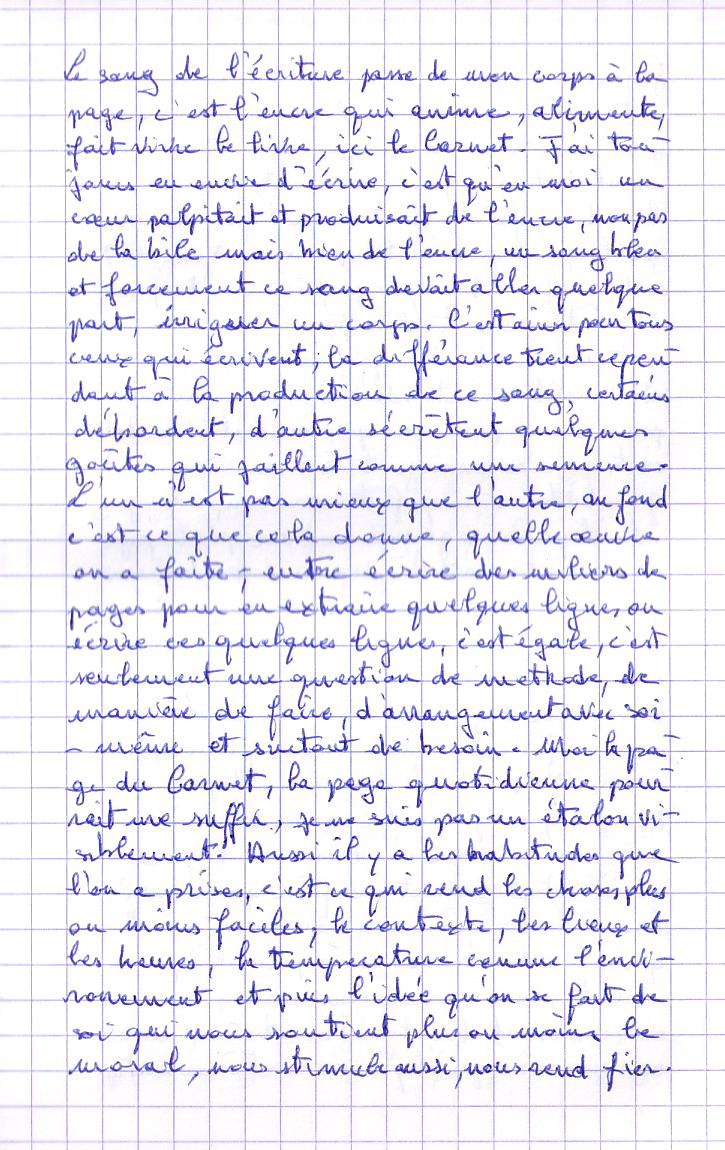 Le sang de l'écriture passe de mon corps à la
page, c'est l'encre qui anime, alimente,
fait vivre le livre, ici le Carnet. J'ai tou-
jours eu envie d'écrire, c'est qu'en moi un
cœur palpitait et produisait de l'encre, non pas
de la bile mais bien de l'encre, un sang bleu
et forcement ce sang devait aller quelque
part, irriguer un corps. C'est ainsi pour tous
ceux qui écrivent, la différance tient cepen-
dant à la production de ce sang, certains
débordent, d'autre sécrètent quelques
goûtes qui jaillent comme une semence.
L'un n'est pas mieux que l'autre, au fond
c'est ce que cela donne, quelle œuvre
on a faite, entre écrire des milliers de
pages pour en extraire quelques lignes ou
écrire ces quelques lignes, c'est égale, c'est
seulement une question de methode, de
manière de faire, d'arrangement avec soi
- même et surtout de besoin. Moi la pa-
ge du Carnet, la page quotidienne pour-
rait me suffir, je ne suis pas un étalon vi-
siblement! Aussi il y a les habitudes que
l'on a prises, c'est ce qui rend les choses plus
ou moins faciles, le contexte, les lieux et
les heures, la temperature comme l'envi-
ronement et puis l'idée qu'on se fait de
soi qui nous soutient plus ou moins le
moral, nous stimule aussi, nous rend fier.